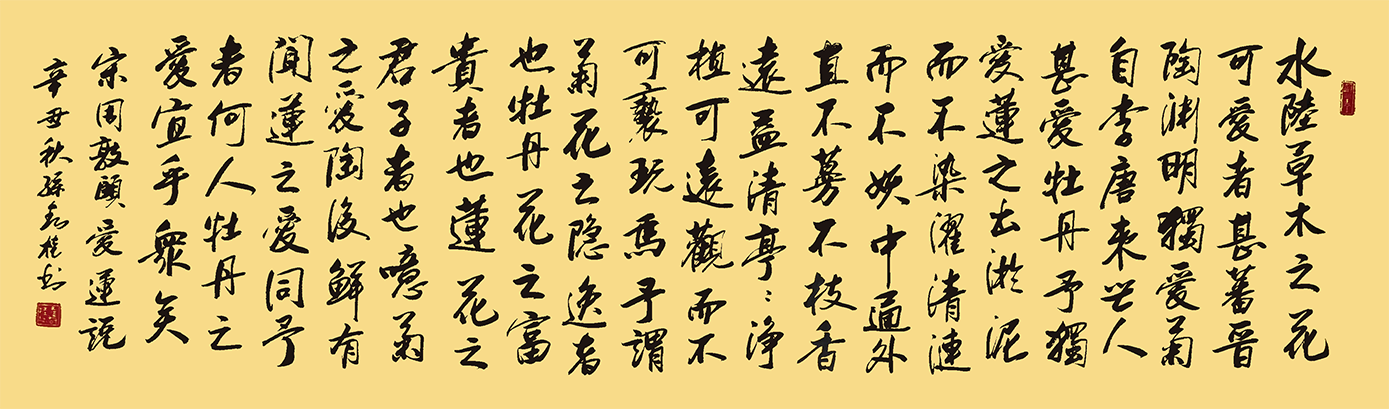 水陸草木之花
可愛者甚蕃晉
陶渊明獨愛菊
自李唐来世人
甚愛牡丹予獨
愛蓮之出淤泥
而不染濯清漣
而不妖中通外
直不蔓不枝香
遠益清亭〻净
植可遠觀而不
可褻玩焉予謂
菊花之隐逸者
也牡丹花之富
貴者也蓮花之
君子者也噫菊
之愛陶後鮮有
聞蓮之愛同予
者何人牡丹之
愛宜乎衆矣
宋周敦頤愛蓮説
辛丑秋孫桂书